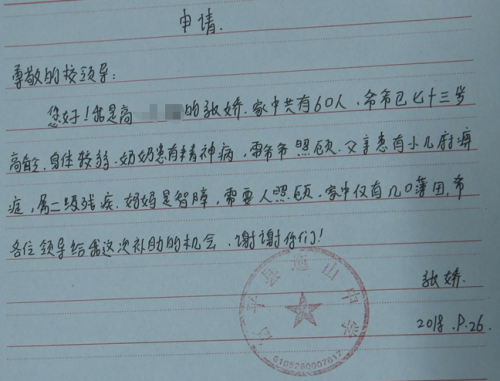 申请.
尊敬的校领导：
您好！我是高 的张娇.家中共有6口人.爷爷已七十三岁
高龄.身体较弱.奶奶患有精神病，需爷爷照顾.父亲患有小儿麻痹
症，属二级残疾.妈妈是智障，需要人照顾.家中仅有几口薄田.希
各位领导给我这次补助的机会.谢谢你们！
县 山中学
6105260007617
张娇.
2018.9.26.